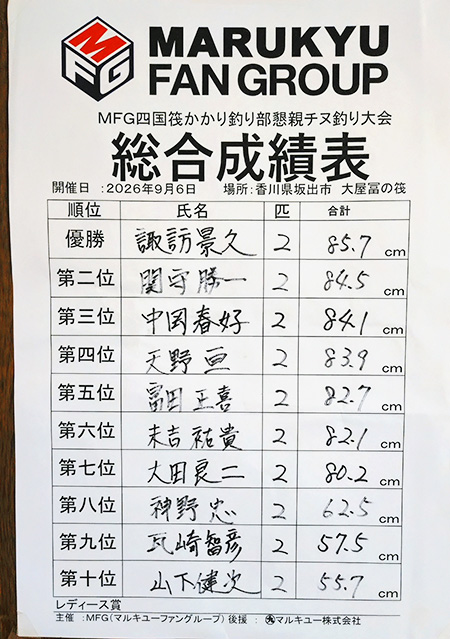 MFG
MARUKYU
FAN GROUP
MFG四国筏かかり釣り部懇親チヌ釣り大会
総合成績表
開催日 :2026年9月6日 場所:香川県坂出市 大屋冨の筏
順位 氏名 匹 合計
優勝 諏訪景久 2 85.7 cm
第二位 関守勝一 2 84.5 cm
第三位 中岡春好 2 84.1 cm
第四位 天野 亘 2 83.9 cm
第五位 富田正喜 2 82.7 cm
第六位 末吉祐貴 2 82.1 cm
第七位 大田良二 2 80.2 cm
第八位 神野 忠 2 62.5 cm
第九位 瓦崎智彦 2 57.5 cm
第十位 山下健次 2 55.7 cm
レディース賞
主催 :MFG(マルキユーファングループ) 後援 : マルキユー株式会社